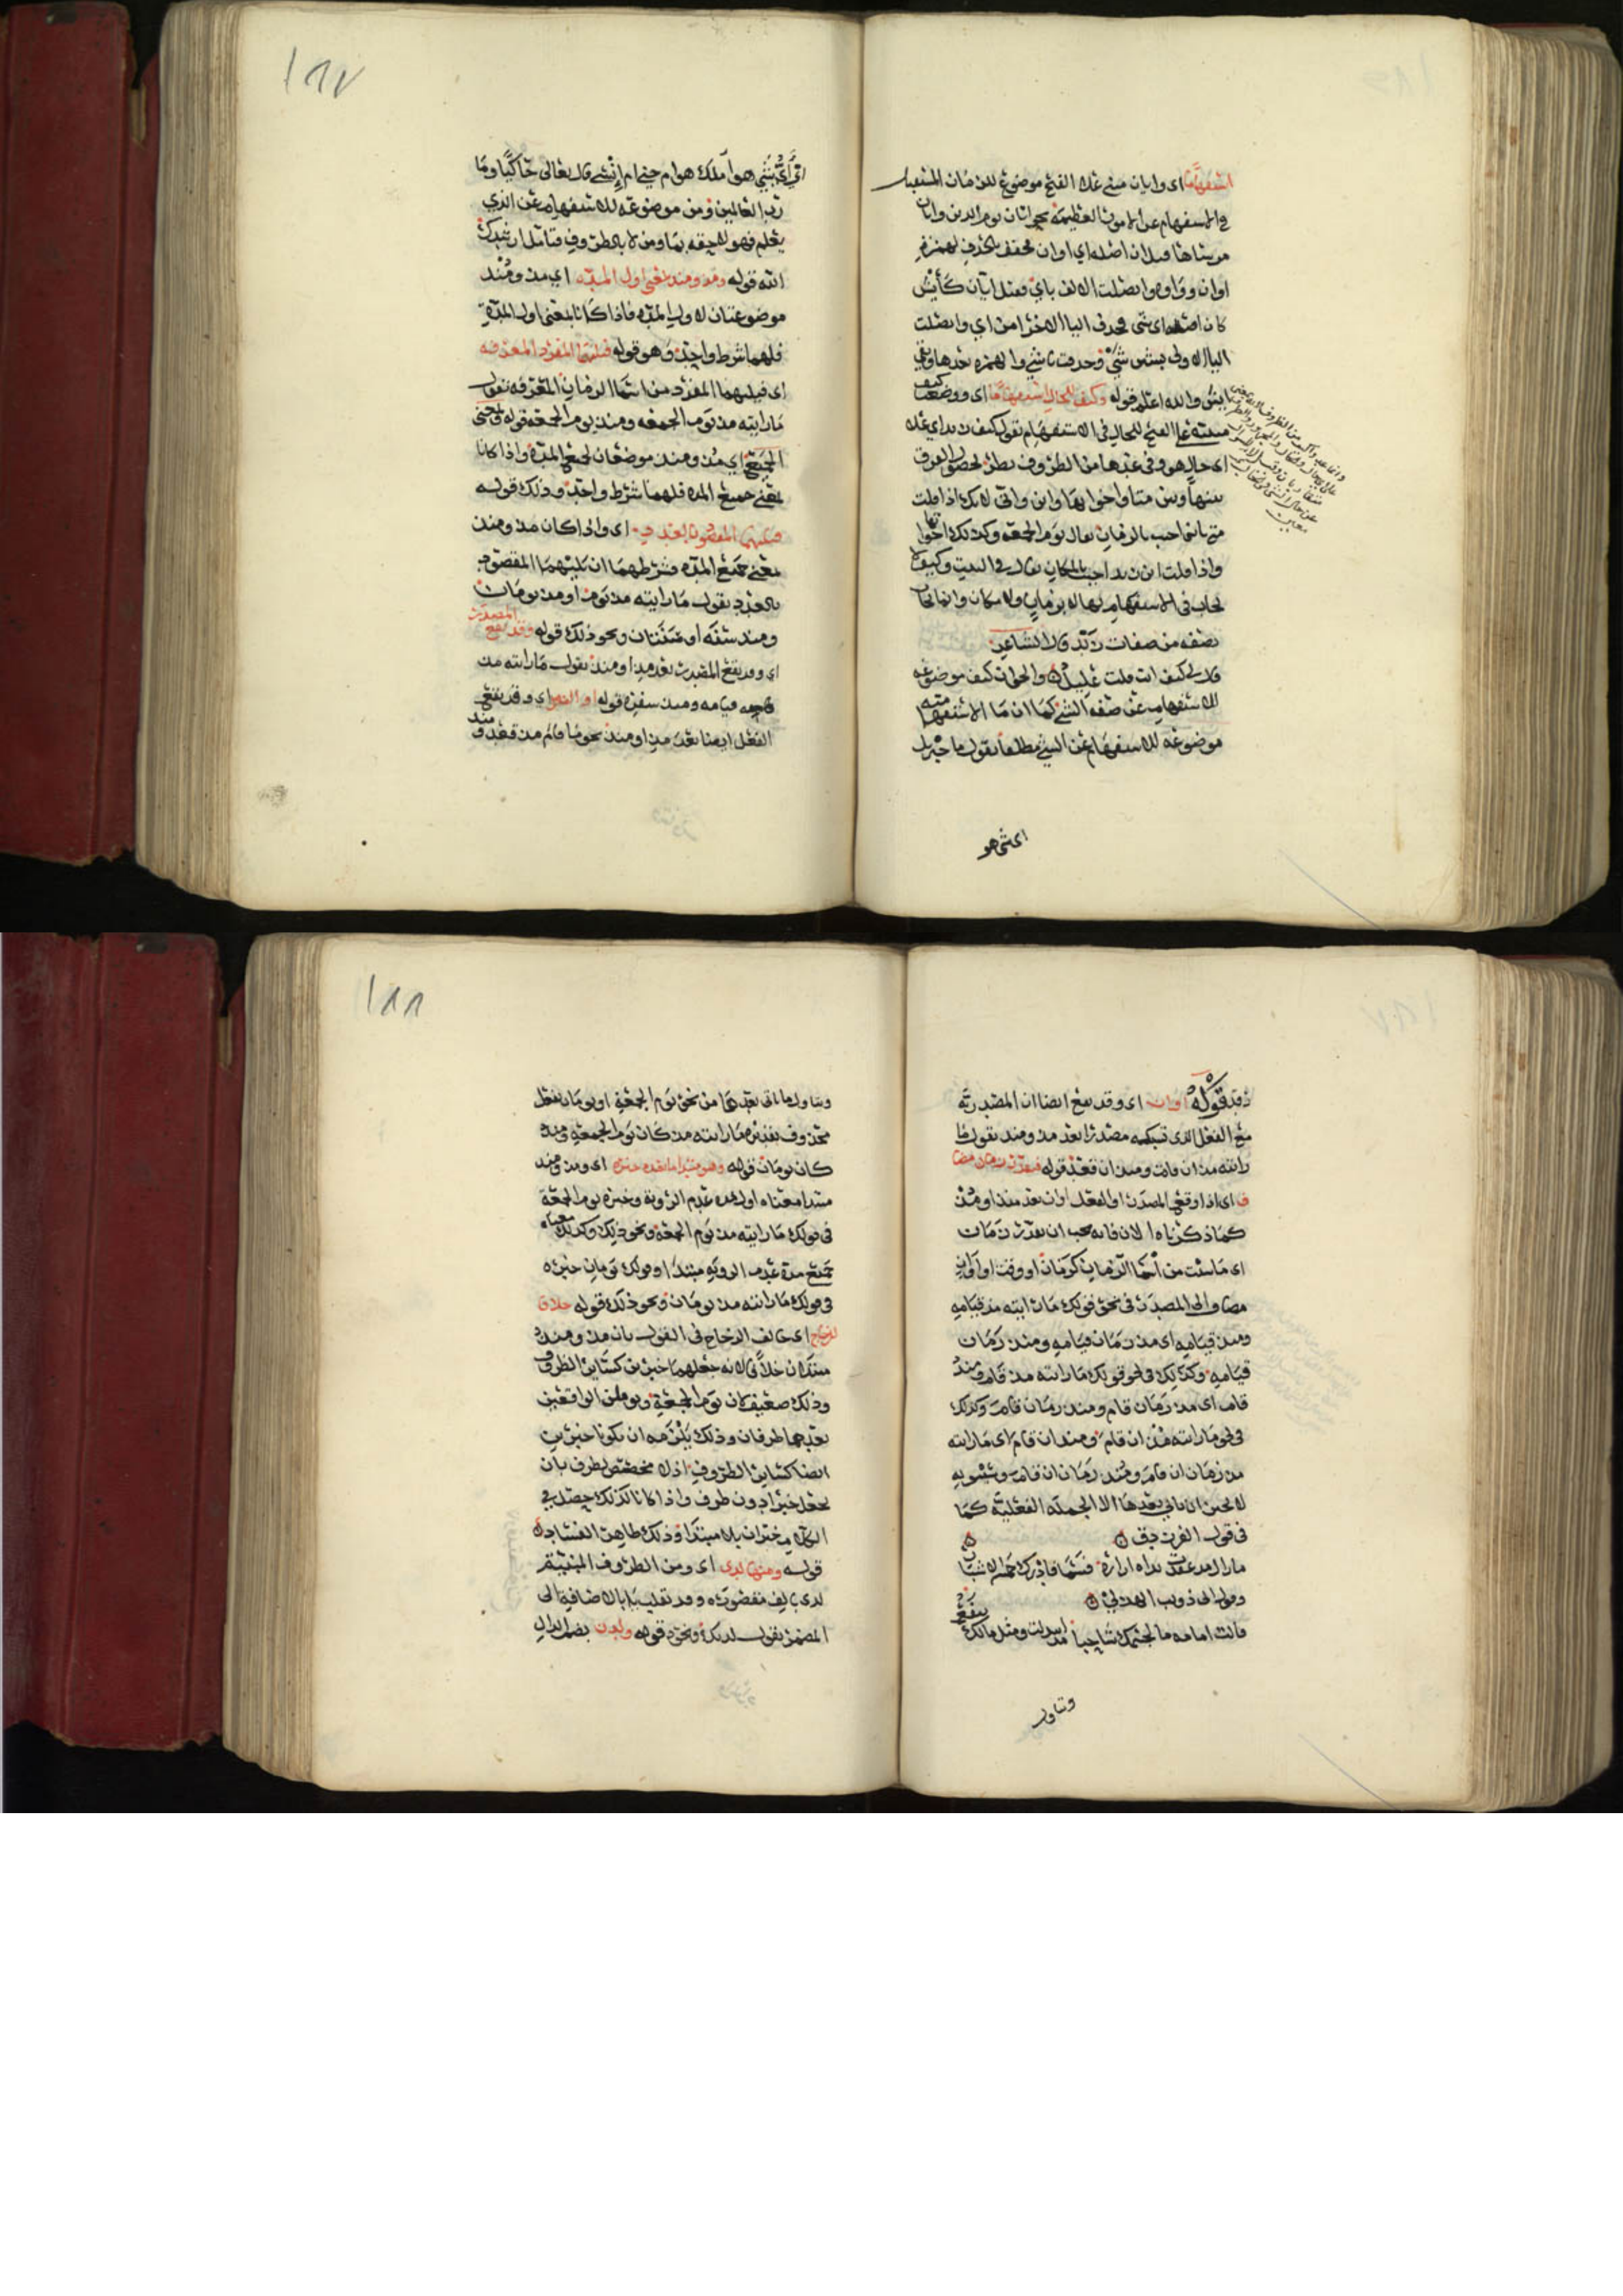 استفهاما اى وايان مبنى على الفتح موضوع للزمان المستقبل
في الاستفهام عن الامور العظيمة نحو ايان يوم الدين وايان
مرساها قيل ان اصله اي اوان مخفف بحذف لهمزة
اوان وواوه واتصلت الالف باي فقيل ايان كأيش
كان اصله اي شي فحذف اليا الاخرا من اي واتصلت
اليا الاولى بشين شي وحذفت يا شي والهمزة بعدها وبقي
ايش والله اعلم قوله وكيف للحال استفهاما اى ووضعت كيف
مبنية على الفتح للحال في الاستفهام تقول كيف زيد اي على
اى حال هو وفي عدها من الظروف نظر لحصول الفرق
بينها وبين متا واخواتها واين وانى لانك اذا قلت
متى تاتنا اجبت بالزمان يقال يوم الجمعة وكذلك اخواتها
واذا قلت اين زيد اجبت بالمكان يقال في البيت وكيف لا
يجاب في الاستفهام بها لا بزمان ولا مكان وانما يجاب
بصفة من صفات زيد قال الشاعر
قال لي كيف انت قلت عليل والجواب كيف موضوعة
للاستفهام عن صفة الشي كما ان ما الاستفهامية
موضوعة للاستفهام عن الشي مطلقا تقول ما جبريل
اى شى هو
١٨٧
اى اى شي هو املك هو ام جني ام إنسي قال تعالى حاكيا وما
رب العالمين ومن موضوعة للاستفهام عن الذي
يعلم فهو لاحقه بما ومن لا بالظروف فتامل ارشدك
الله قوله ومذ ومنذ بمعنى اول المدة اي مذ ومنذ
موضوعتان لاول المدة فاذا كانا بمعنى اول المدة
فلهما شرط واحد وهو قوله فيليهما المفرد المعرفة
اى فيليهما المفرد من اسما الزمان المعرفة تقول
ما رايته مذ يوم الجمعة ومنذ يوم الجمعة قوله وبمعنى
الجميع اي مذ ومنذ موضعان لجميع المدة واذا كانا
بمعنى جميع المدة فلهما شرط واحد وذلك قوله
فيليهما المقصود بالعدد اى واذا كان مذ ومنذ
بمعنى جميع المدة فشرطهما ان يليهما المقصود
بالعدد تقول ما رايته مذ يوم او مذ يومان
ومنذ سنة او سنتان ونحو ذلك قوله وقد يقع المصدر
اى وقد يقع المصدر بعد مذ او منذ تقول ما رايته مذ
قيامه ومنذ سفره قوله او الفعل اي وقد يقع
الفعل ايضا بعد مذ او منذ نحو ما قام مذ قعد و منذ
رقد قوله او ان اى وقد يقع ايضا ان المصدرية
مع الفعل الذى تسبكه مصدرا بعد مذ ومنذ تقول ما
رايته مذ ان قام ومنذ ان قعد قوله فيقدر زمان مضا
ف اى اذا وقع المصدر او الفعل او ان بعد منذ او مذ
كما ذكرناه الان فانه يجب ان يقدر زمان
اى ما شئت من اسما الزمان كزمان او وقت او اوان
مضاف الى المصدر في نحو قولك ما رايته مذ قيامه
ومنذ قيامه اى مذ زمان قيامه ومنذ زمان
قيامه وكذلك في نحو قولك ما رايته مذ قام ومنذ
قام اى مذ زمان قام ومنذ زمان قام وكذلك
في نحو ما رايته مذ ان قام ومنذ ان قام اى ما رايته
مذ زمان ان قام ومنذ زمان ان قام وسيبويه
لا يجيز ان ياتي بعدها الا الجملة الفعلية كما
في قول الفرزدق
ما زال مذ عقدت يداه ازاره فسما فادرك خمسة الاشبار
وقول ابى ذويب الهذلي
قالت امامة ما لجسمك شاحبا منذ ابتذلت ومثل مالك ينفع
وتناول
١٨٨
وتناول ما اتى بعدهما من نحو يوم الجمعة او يومان بفعل
محذوف تقديره ما رايته مذ كان يوم الجمعة ومنذ
كان يومان قوله وهو مبتدا ما بعده خبره اى ومذ ومنذ
مبتدا معناه اول مدة عدم الرؤية وخبره يوم الجمعة
في قولك ما رايته مذ يوم الجمعة ونحو ذلك وكذلك معناه
جميع مدة عدم الروية مبتدا وقولك يومان خبره
في قولك ما رايته مذ يومان ونحو ذلك قوله خلافا
للزجاج اى خالف الزجاج في القول بان مذ ومنذ
مبتدان خلافا لانه جعلهما خبرين كسائر الظروف
وذلك ضعيف لان يوم الجمعة ويومين الواقعين
بعدهما ظرفان وذلك يلزمه ان يكونا خبرين
ايضا كسائر الظروف اذ لا مخصص لظرف بان
يجعل خبرا دون ظرف واذا كانا كذلك حصل في
الكلام خبران بلا مبتدا وذلك ظاهر الفساد
قوله ومنها لدى اى ومن الظروف المبنية
لدى بالف مقصورة وقد تقلب يا بالاضافة الى
المضمر تقول لديك ونحوه قوله ولدن بضم الدال